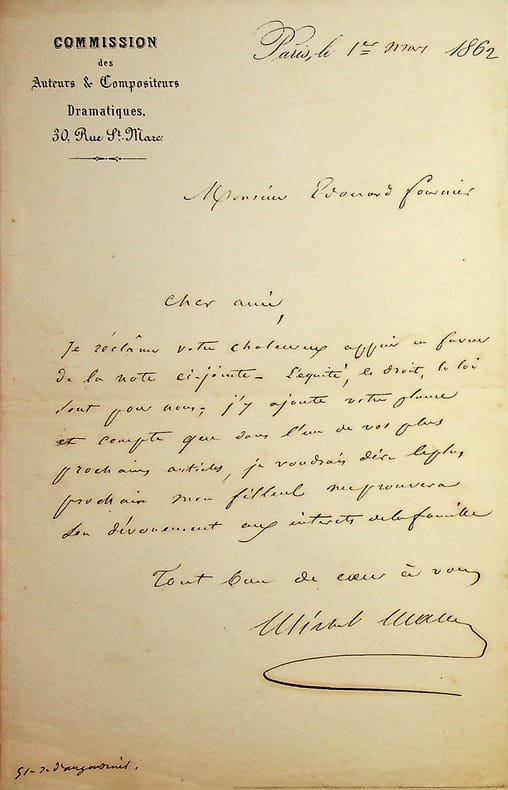 COMMISSION
des
Auteurs & Compositeurs
Dramatiques,
30, Rue St. Marc
Paris, le 1er Mars 1862
Monsieur Edouard Fournier
Cher ami,
Je réclame votre chaleureux appui en faveur
de la note ci-jointe - L'équité, le droit, la loi
sont pour nous, j'y ajoute votre plume
et compte que dans l'un de vos plus
prochains articles, je voudrais dire le plus
prochain mon filleul me prouvera
son dévouement aux interets de la famille
Tout de cœur à vous
Michel Masson